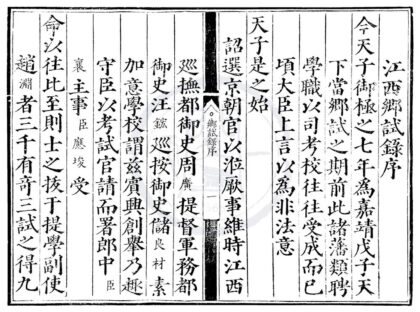 江西鄉試錄序
今天子御極之七年為嘉靖戊子天
下當鄉試之期前此諸藩類聘
學職以司考校往往受成而已
頃大臣上言以為非法意
天子是之始
詔選京朝官以涖厥事維時江西
鄉試錄序
巡撫都御史周廣提督軍務都
御史汪鋐巡按御史儲良材素
加意學校謂茲賓興創舉乃趣
守臣以考試官請而署郎中臣
襄主事臣應埈受
命以往比至則士之拔于提學副使
趙淵者三千有奇三試之得九